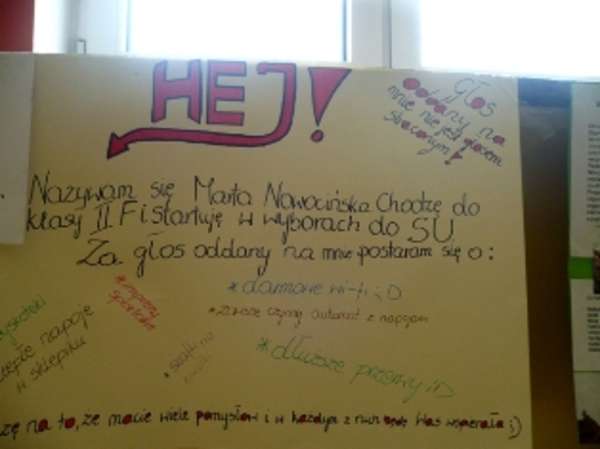 HEJ!
Głos
oddany na
mnie nie jest głosem
straconym!
Nazywam się Marta Nowocińska Chodzę do
klasy II F i startuję w wyborach do SU
Za głos oddany na mnie postaram się o:
*darmowe wi-fi ;D
*zawsze czynny automat z napojami
*imprezy
*dłuższe przerwy ;D
napoje
w sklepiku
szafki na
na to, że macie wiele pomysłów i w każdym z nich będę Was wspierała ;)